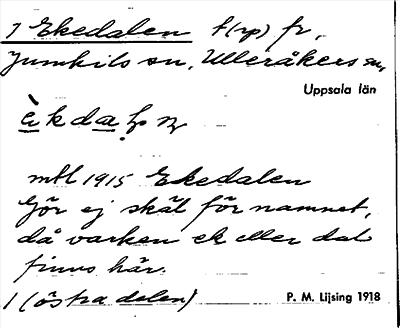 1 Ekedalen t(rp) fr,
Jumkils sn, Ulleråkers hd,
Uppsala län
mtl 1915 Ekedalen
Gör ej skäl för namnet,
då varken ek eller dal
finns här.
1 (östra delen) P. M. Lijsing 1918